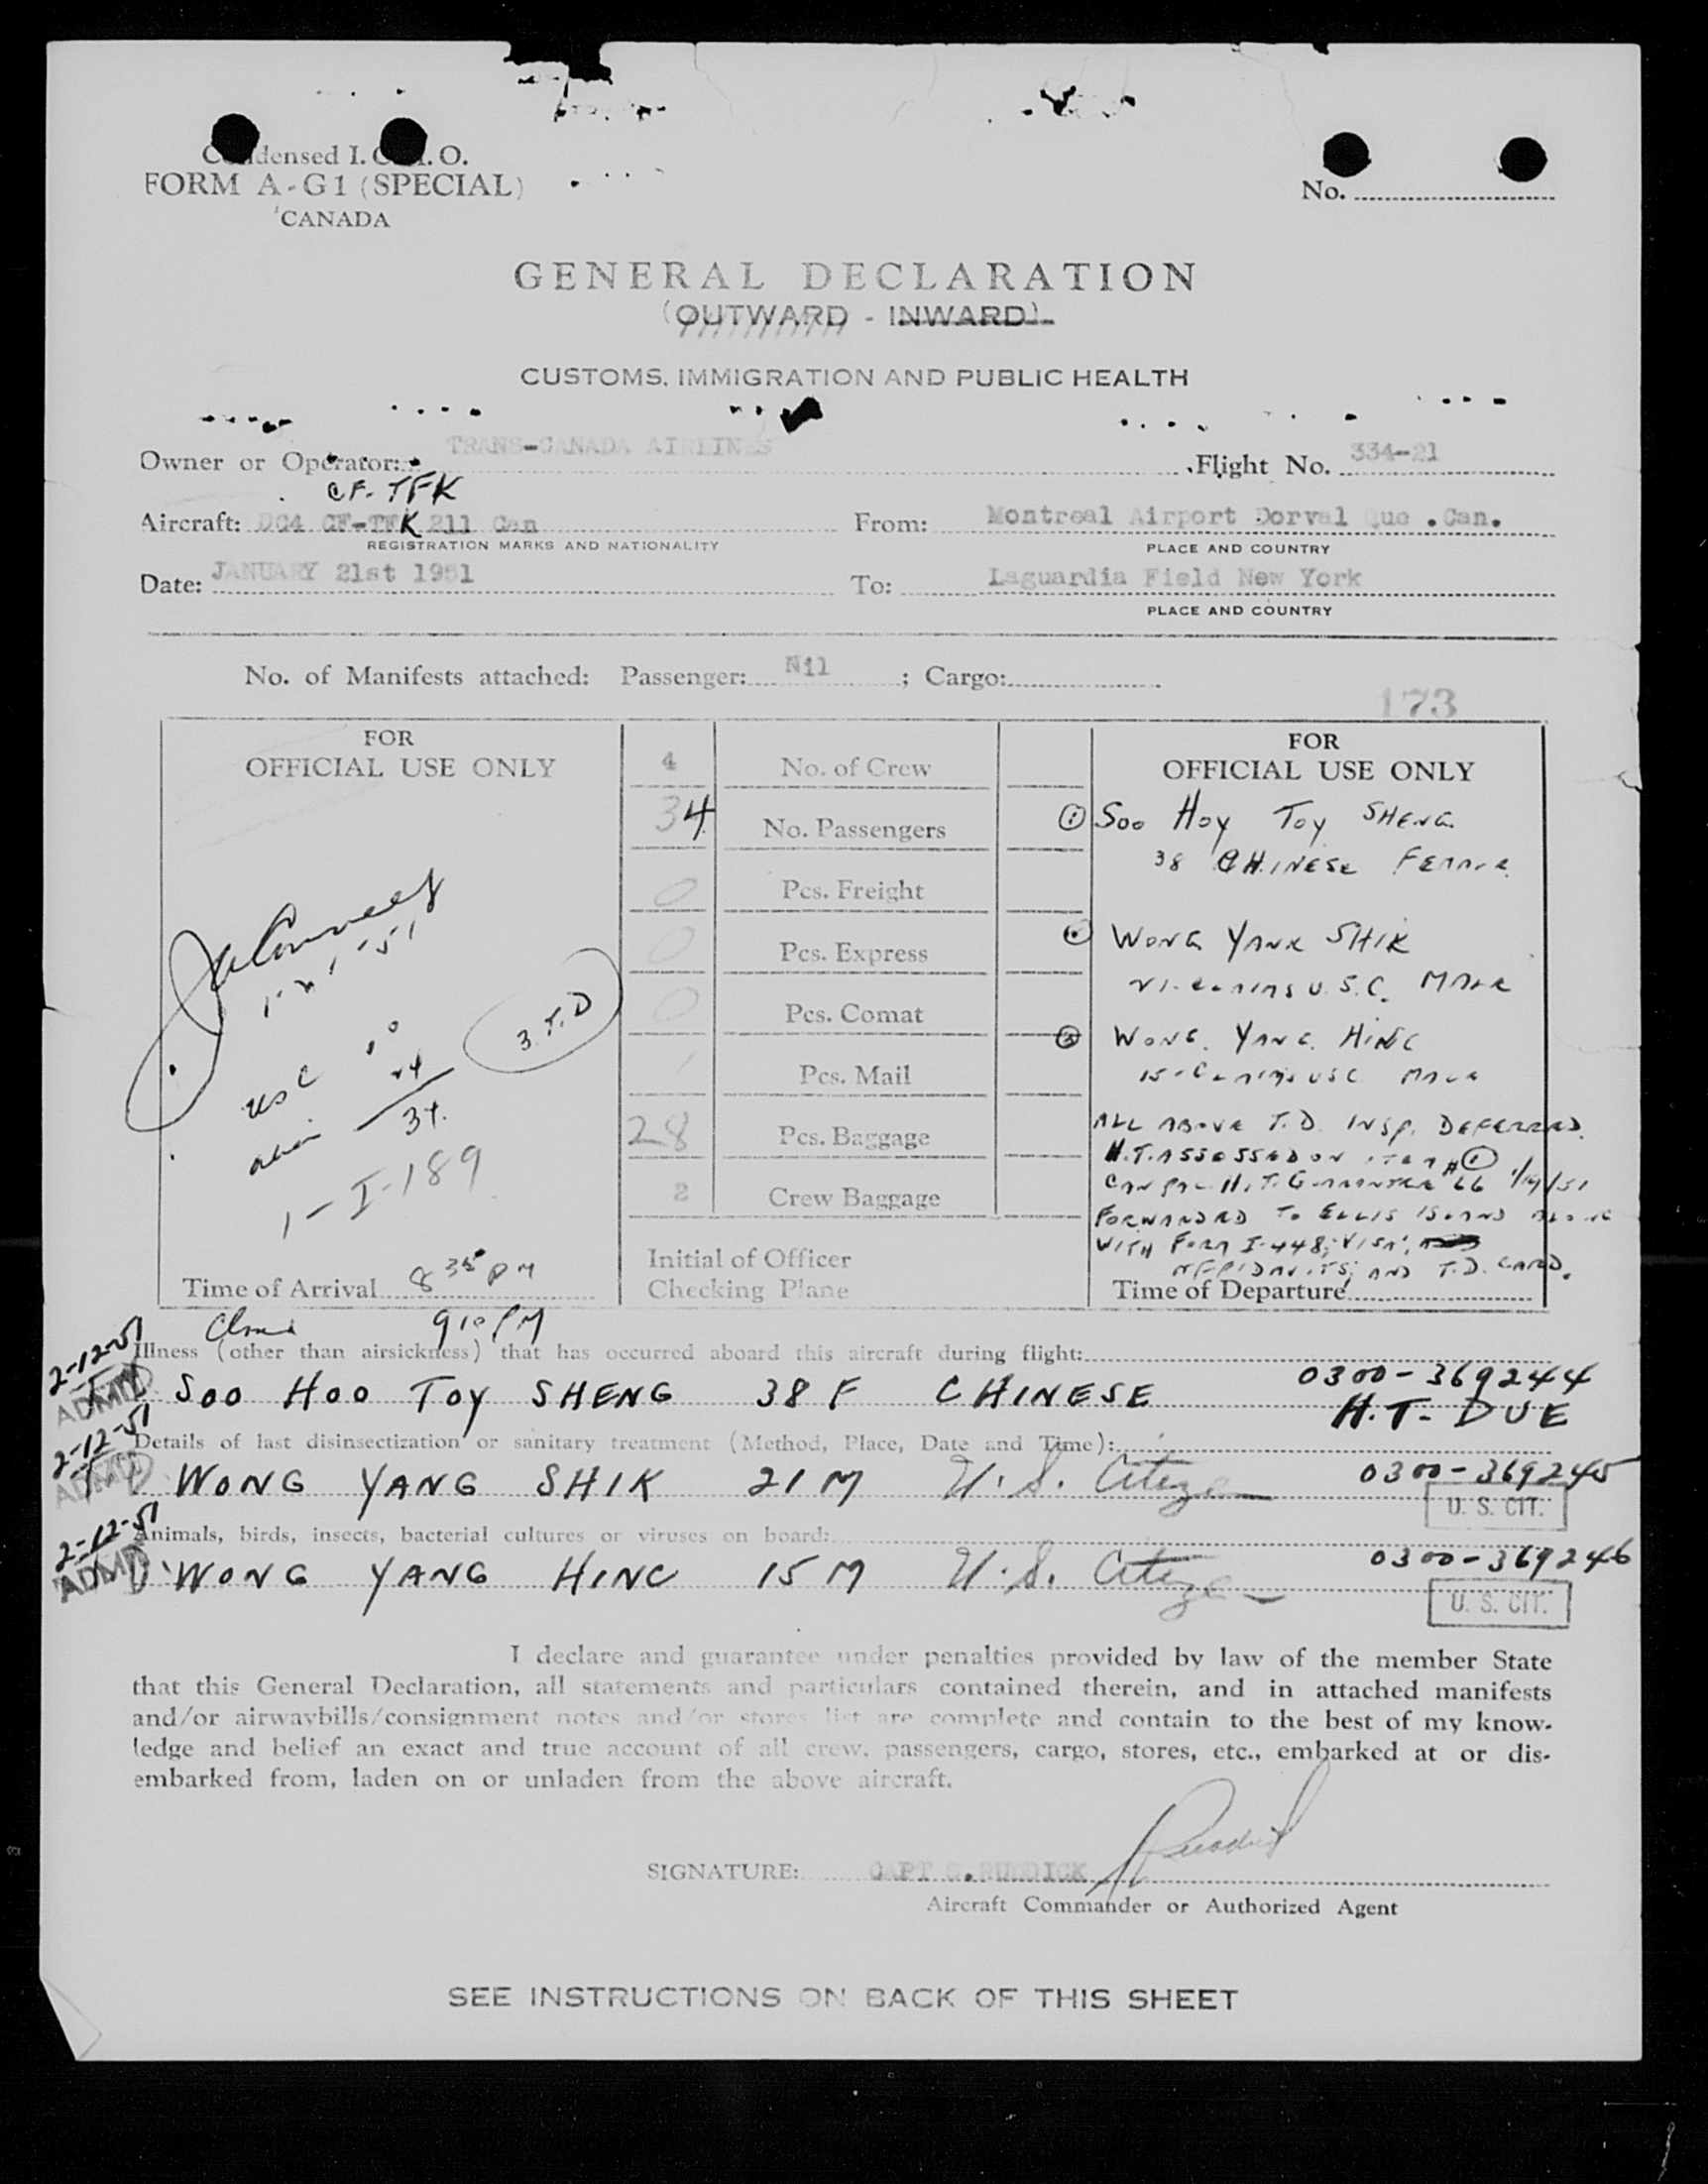 Condensed I. C. A. O.
FORM A-G1 (SPECIAL)
CANADA
No.
GENERAL DECLARATION
(OUTWARD - INWARD)
CUSTOMS, IMMIGRATION AND PUBLIC HEALTH
Owner or Operator: TRANS-CANADA AIRLINES Flight No. 334-21
CF-TFK
Aircraft: DC4 CF-TFK 211 Can From: Montreal Airport Dorval Que. Can.
REGISTRATION MARKS AND NATIONALITY PLACE AND COUNTRY
Date: JANUARY 21st 1951 To: Laguardia Field New York
PLACE AND COUNTRY
No. of Manifests attached: Passenger: Nil ; Cargo:
173
FOR
OFFICIAL USE ONLY
1-21-51
USC 10
alien 24
34
3 T.D
1-I-189
Time of Arrival 8 35 PM
4 No. of Crew
34 No. Passengers
0 Pcs. Freight
0 Pcs. Express
0 Pcs. Comat
1 Pcs. Mail
28 Pcs. Baggage
2 Crew Baggage
Initial of Officer
Checking Plane
FOR
OFFICIAL USE ONLY
① SOO HOY TOY SHENG
38 CHINESE FEMALE
② WONG YANK SHIK
21-CLAIMS U.S.C. MALE
③ WONG YANG HING
15-CLAIMS USC MALE
ALL ABOVE T.D. INSP. DEFERRED.
H.T. ASSESSED ON ITEM #①
CAN PAC H.T. GUARANTEE 66 1/19/51
FORWARDED TO ELLIS ISLAND ALONG
WITH FORM I-448, VISA,
AFFIDAVITS, AND T.D. CARD.
Time of Departure
910 PM
Illness (other than airsickness) that has occurred aboard this aircraft during flight:
2-12-51
ADMD SOO HOO TOY SHENG 38 F CHINESE 0300-369244
H.T. - DUE
Details of last disinsectization or sanitary treatment (Method, Place, Date and Time):
2-12-51
ADMD WONG YANG SHIK 21 M U.S. Citizen 0300-369245
U. S. CIT.
Animals, birds, insects, bacterial cultures or viruses on board:
2-12-51
ADMD WONG YANG HING 15 M U.S. Citizen 0300-369246
U. S. CIT.
I declare and guarantee under penalties provided by law of the member State
that this General Declaration, all statements and particulars contained therein, and in attached manifests
and/or airwaybills/consignment notes and/or stores list are complete and contain to the best of my know-
ledge and belief an exact and true account of all crew, passengers, cargo, stores, etc., embarked at or dis-
embarked from, laden on or unladen from the above aircraft.
SIGNATURE: CAPT G. RUDDICK
Aircraft Commander or Authorized Agent
SEE INSTRUCTIONS ON BACK OF THIS SHEET